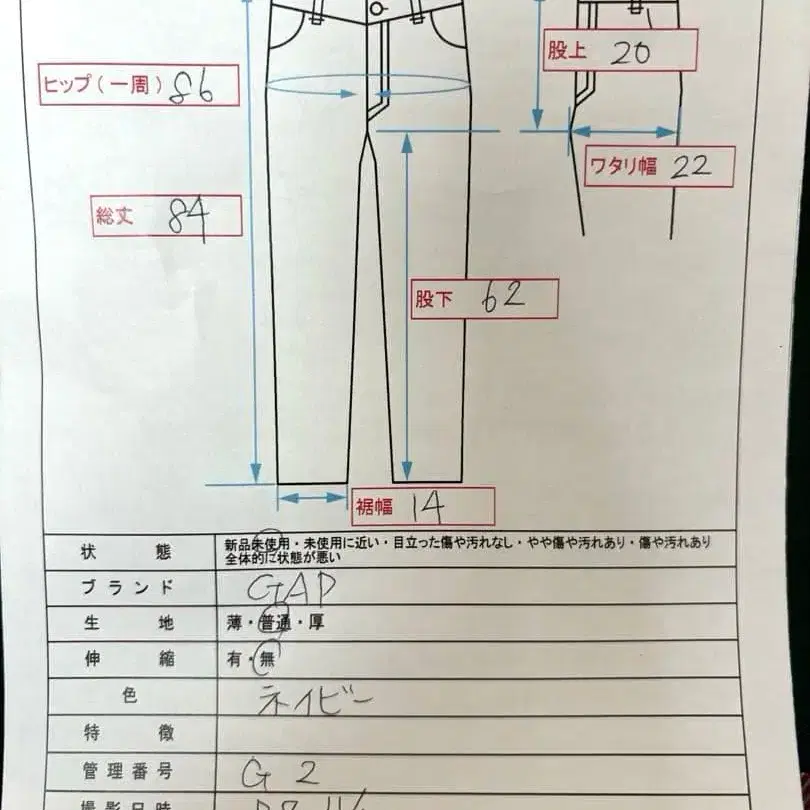 股上 20
ヒップ(一周) 86
ワタリ幅 22
総丈 84
股下 62
裾幅 14
状態 新品未使用・未使用に近い・目立った傷や汚れなし・やや傷や汚れあり・傷や汚れあり
全体的に状態が悪い
ブランド GAP
生地 薄・普通・厚
伸縮 有・無
色 ネイビー
特徴
管理番号 G 2
撮影日時